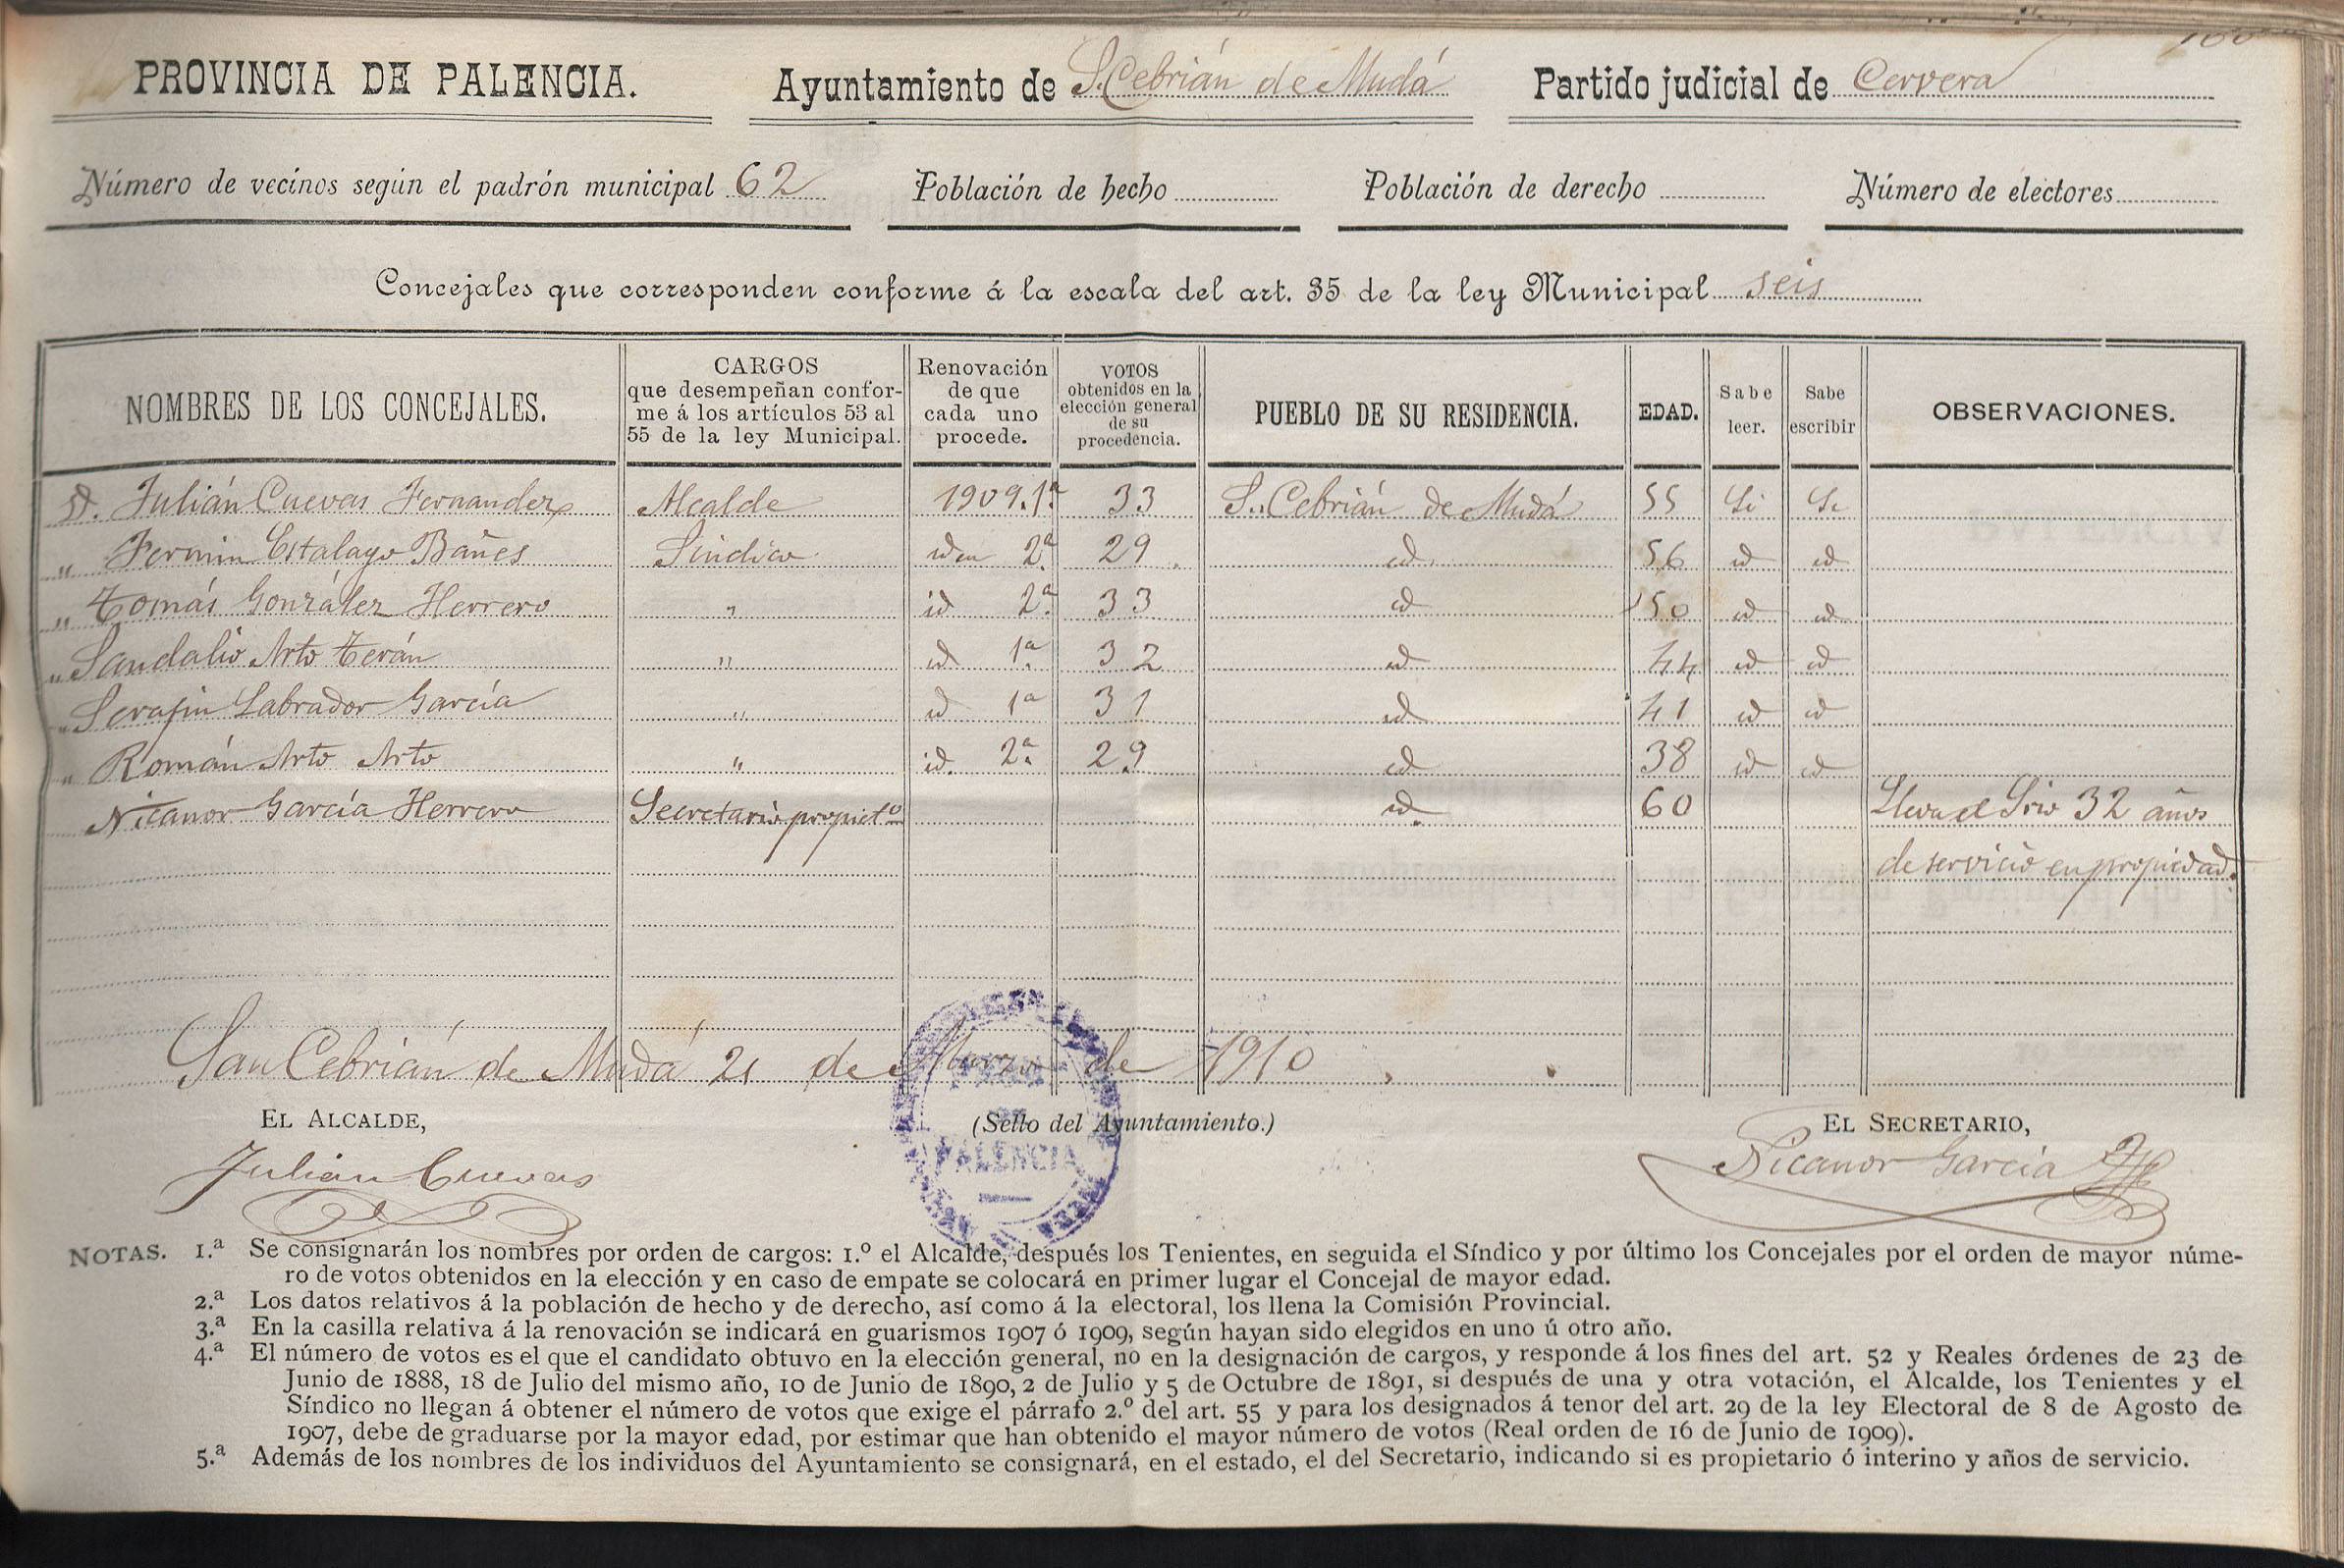 PROVINCIA DE PALENCIA. Ayuntamiento de S. Cebrián de Mudá Partido judicial de Cervera
Número de vecinos según el padrón municipal 62 Población de hecho Población de derecho Número de electores
Concejales que corresponden conforme á la escala del art. 35 de la ley Municipal seis
NOMBRES DE LOS CONCEJALES.
CARGOS
que desempeñan confor-
me á los artículos 53 al
55 de la ley Municipal.
Renovación
de que
cada uno
procede.
VOTOS
obtenidos en la
elección general
de su
procedencia.
PUEBLO DE SU RESIDENCIA.
EDAD.
Sabe
leer.
Sabe
escribir
OBSERVACIONES.
D. Julián Cuevas Fernandez Alcalde 1909.1ª 33 S. Cebrián de Mudá 55 Si Si
" Fermin Estalayo Bañes Sindico iden 2ª 29 id 56 id id
" Tomás González Herrero " id 2ª 33 id 50 id id
" Sandalio Arto Terán " id 1ª 32 id 44 id id
" Serafin Labrador García " id 1ª 31 id 41 id id
" Román Arto Arto " id. 2ª 29 id 38 id id
Nicanor García Herrero Secretario propietº id. 60 Lleva el Srio 32 años
de servicio en propiedad.
San Cebrián de Mudá 21 de Marzo de 1910
EL ALCALDE, (Sello del Ayuntamiento.) EL SECRETARIO,
Julian Cuevas Nicanor García
PALENCIA
NOTAS. 1.ª Se consignarán los nombres por orden de cargos: 1.º el Alcalde, después los Tenientes, en seguida el Síndico y por último los Concejales por el orden de mayor núme-
ro de votos obtenidos en la elección y en caso de empate se colocará en primer lugar el Concejal de mayor edad.
2.ª Los datos relativos á la población de hecho y de derecho, así como á la electoral, los llena la Comisión Provincial.
3.ª En la casilla relativa á la renovación se indicará en guarismos 1907 ó 1909, según hayan sido elegidos en uno ú otro año.
4.ª El número de votos es el que el candidato obtuvo en la elección general, no en la designación de cargos, y responde á los fines del art. 52 y Reales órdenes de 23 de
Junio de 1888, 18 de Julio del mismo año, 10 de Junio de 1890, 2 de Julio y 5 de Octubre de 1891, si después de una y otra votación, el Alcalde, los Tenientes y el
Síndico no llegan á obtener el número de votos que exige el párrafo 2.º del art. 55 y para los designados á tenor del art. 29 de la ley Electoral de 8 de Agosto de
1907, debe de graduarse por la mayor edad, por estimar que han obtenido el mayor número de votos (Real orden de 16 de Junio de 1909).
5.ª Además de los nombres de los individuos del Ayuntamiento se consignará, en el estado, el del Secretario, indicando si es propietario ó interino y años de servicio.